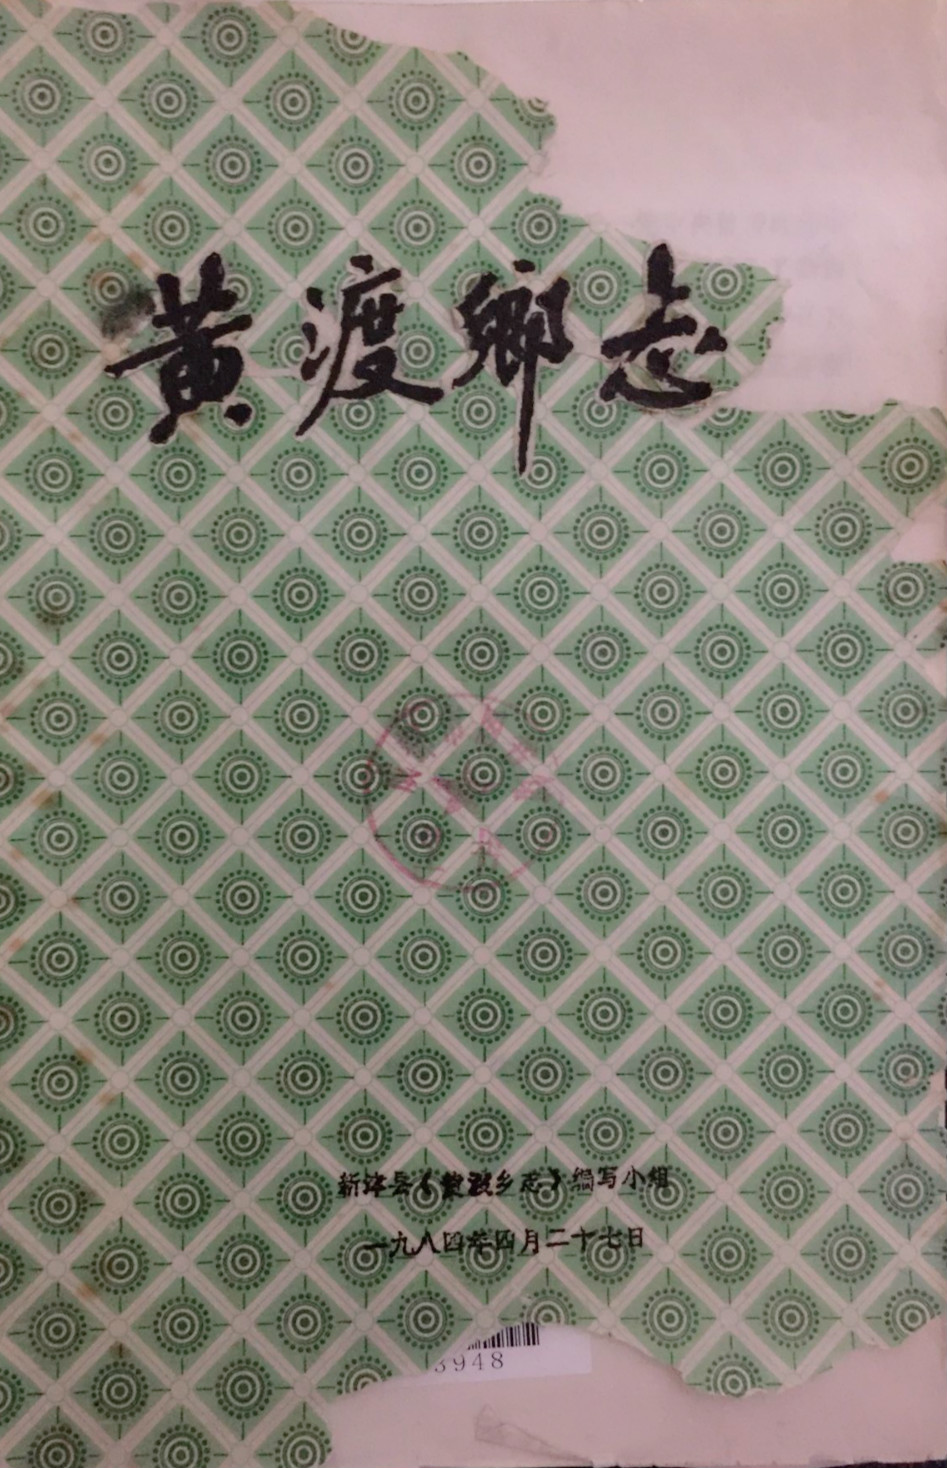 黄渡鄉志
新津县《黄渡乡志》编写小组
一九八四年四月二十七日
3948